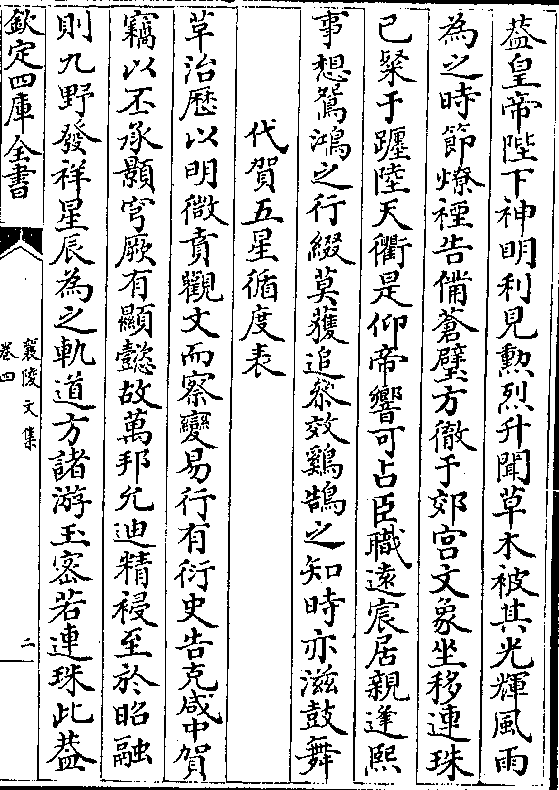 葢皇帝陛下神明利見勲烈升聞草木被其光輝風雨
為之時節燎禋告備蒼璧方徹于郊宫文象坐移連珠
已粲于躔陸天衢是仰帝響可占臣職遠宸居親逢熙
事想鴛鴻之行綴莫獲追叅效鷄鵠之知時亦滋鼓舞
代賀五星循度表
草治歴以明微賁觀文而察變易行有衍史告克咸中賀
竊以丕承顥穹厥有顯懿故萬邦允迪精祲至於昭融
則九野發祥星辰為之軌道方諸游玉宻若連珠此葢
欽定四庫全書
襄陵文集
卷四
二